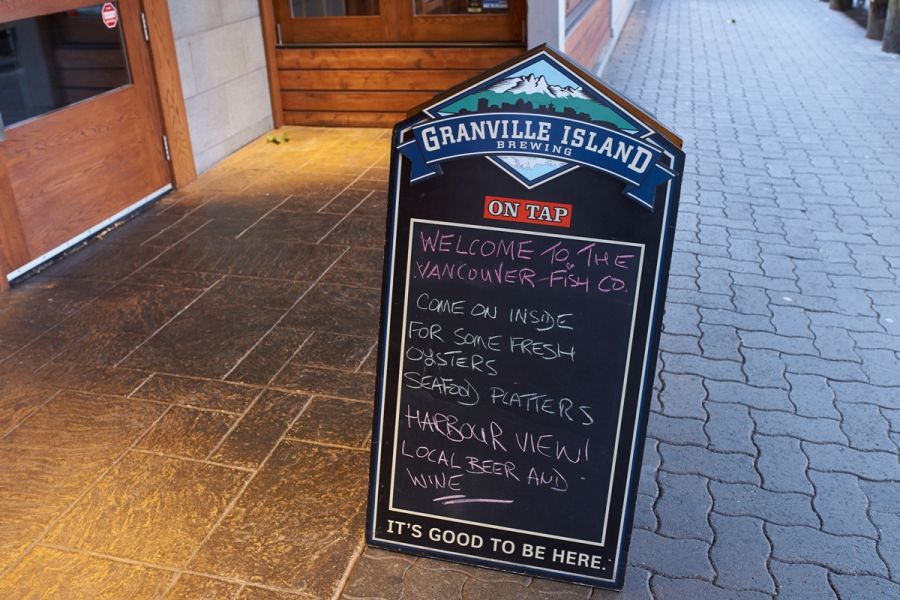 GRANVILLE ISLAND
BREWING
ON TAP
WELCOME TO THE
VANCOUVER FISH CO.
COME ON INSIDE
FOR SOME FRESH
OYSTERS
SEAFOOD PLATTERS
HARBOUR VIEW!
LOCAL BEER AND
WINE
IT'S GOOD TO BE HERE.